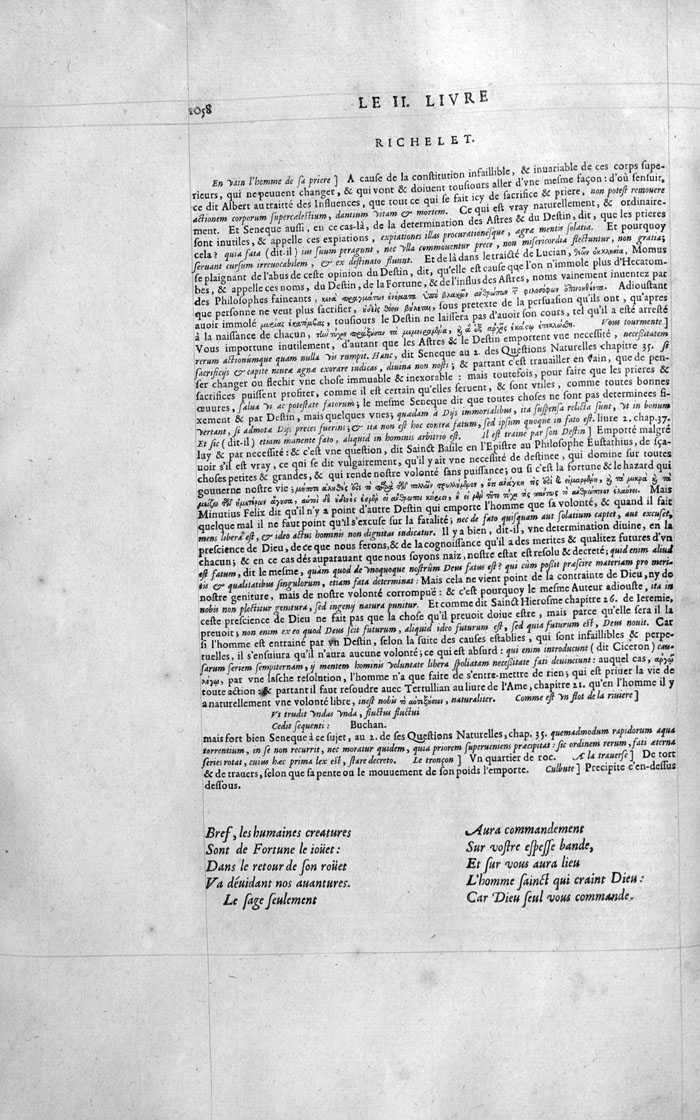 1058
LE II. LIVRE
RICHELET.
En vain l'homme de sa priere ] A cause de la constitution infaillible, & inuariable de ces corps supe-
rieurs, qui ne peuuent changer, & qui vont & doiuent tousiours aller d'vne mesme façon: d'où s'ensuit,
ce dit Albert au traitté des Influences, que tout ce qui se fait icy de sacrifice & priere, non potest remouere
actionem corporum supercælestium, dantium vitam & mortem. Ce qui est vray naturellement, & ordinaire-
ment. Et Seneque aussi, en ce cas-là, de la determination des Astres & du Destin, dit, que les prieres
sont inutiles, & appelle ces expiations, expiationes illas procurationesque, ægræ mentis solatia. Et pourquoy
cela? quia fata (dit-il) ius suum peragunt, nec vlla commouentur prece, non misericordia flectuntur, non gratia;
seruant cursum irreuocabilem, & ex destinato fluunt. Et de là dans le traicté de Lucian, Momus
se plaignant de l'abus de ceste opinion du Destin, dit, qu'elle est cause que l'on n'immole plus d'Hecatom-
bes, & appelle ces noms, du Destin, de la Fortune, & de l'influs des Astres, noms vainement inuentez par
des Philosophes faineants, Adioustant
que personne ne veut plus sacrifier, sous pretexte de la persuasion qu'ils ont, qu'apres
auoir immolé tousiours le Destin ne laissera pas d'auoir son cours, tel qu'il a esté arresté
à la naissance de chacun, Vous tourmente ]
Vous importune inutilement, d'autant que les Astres & le Destin emportent vne necessité, necessitatem
rerum actionúmque quam nulla vis rumpit. Hanc, dit Seneque au 2. des Questions Naturelles chapitre 35. si
sacrificijs & capite niueæ agnæ exorare iudicas, diuina non nosti; & partant c'est trauailler en vain, que de pen-
ser changer ou flechir vne chose immuable & inexorable: mais toutefois, pour faire que les prieres &
sacrifices puissent profiter, comme il est certain qu'elles seruent, & sont vtiles, comme toutes bonnes
œuures, salua vi ac potestate fatorum; le mesme Seneque dit que toutes choses ne sont pas determinees fi-
xement & par Destin, mais quelques vnes; quædam à Dijs immortalibus, ita suspensa relicta sunt, vt in bonum
vertant, si admotæ Dijs preces fuerint; & ita non est hoc contra fatum, sed ipsum quoque in fato est. liure 2. chap. 37.
Et sic (dit-il) etiam manente fato, aliquid in hominis arbitrio est. Il est trainé par son Destin ] Emporté malgré
luy & par necessité: & c'est vne question, dit Sainct Basile en l'Epistre au Philosophe Eustathius, de sça-
uoir s'il est vray, ce qui se dit vulgairement, qu'il y ait vne necessité de destinee, qui domine sur toutes
choses petites & grandes, & qui rende nostre volonté sans puissance; ou si c'est la fortune & le hazard qui
gouuerne nostre vie; Mais
Minutius Felix dit qu'il n'y a point d'autre Destin qui emporte l'homme que sa volonté, & quand il fait
quelque mal il ne faut point qu'il s'excuse sur la fatalité; nec de fato quisquam aut solatium captet, aut excuset,
mens libera est, & ideo actus hominis non dignitas iudicatur. Il y a bien, dit-il, vne determination diuine, en la
prescience de Dieu, de ce que nous ferons, & de la cognoissance qu'il a des merites & qualitez futures d'vn
chacun; & en ce cas dés auparauant que nous soyons naiz, nostre estat est resolu & decreté; quid enim aliud
est fatum, dit le mesme, quam quod de vnoquoque nostrûm Deus fatus est? qui cum possit præscire materiam pro meri-
tis & qualitatibus singulorum, etiam fata determinat: Mais cela ne vient point de la contrainte de Dieu, ny de
nostre geniture, mais de nostre volonté corrompuë: & c'est pourquoy le mesme Auteur adiouste, ita in
nobis non plectitur genitura, sed ingenij natura punitur. Et comme dit Sainct Hierosme chapitre 26. de Ieremie,
ceste prescience de Dieu ne fait pas que la chose qu'il preuoit doiue estre, mais parce qu'elle sera il la
preuoit; non enim ex eo quod Deus scit futurum, aliquid ideo futurum est, sed quia futurum est, Deus nouit. Car
si l'homme est entrainé par vn Destin, selon la suite des causes establies, qui sont infaillibles & perpe-
tuelles, il s'ensuiura qu'il n'aura aucune volonté; ce qui est absurd: qui enim introducunt (dit Ciceron) cau-
sarum seriem sempiternam, ij mentem hominis voluntate libera spoliatam necessitate fati deuinciunt: auquel cas,
par vne lasche resolution, l'homme n'a que faire de s'entre-mettre de rien; qui est priuer la vie de
toute action: & partant il faut resoudre auec Tertullian au liure de l'Ame, chapitre 21. qu'en l'homme il y
a naturellement vne volonté libre, inest nobis naturaliter. Comme est vn flot de la riuiere ]
Vt trudit vndas vnda, fluctus fluctui
Cedit sequenti: Buchan.
mais fort bien Seneque à ce sujet, au 2. de ses Questions Naturelles, chap. 35. quemadmodum rapidorum aqua
torrentium, in se non recurrit, nec moratur quidem, quia priorem superueniens præcipitat: sic ordinem rerum, fati æterna
series rotat, cuius hæc prima lex est, stare decreto. Le tronçon ] Vn quartier de roc. A la trauerse ] De tort
& de trauers, selon que sa pente ou le mouuement de son poids l'emporte. Culbute ] Precipite c'en-dessus
dessous.
Bref, les humaines creatures
Sont de Fortune le ioüet:
Dans le retour de son roüet
Va déuidant nos auantures.
Le sage seulement
Aura commandement
Sur vostre espesse bande,
Et sur vous aura lieu
L'homme sainct qui craint Dieu:
Car Dieu seul vous commande.